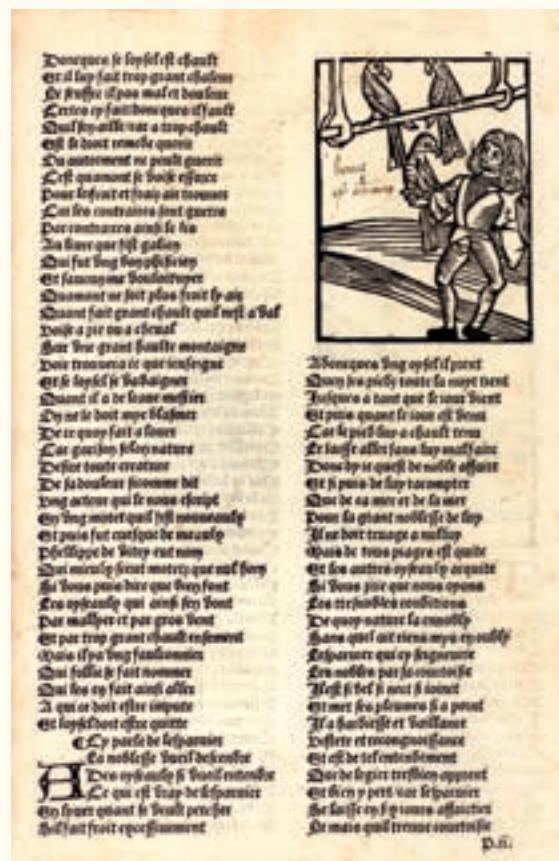 Doncques se loysel est chault
Et il luy fait trop grant chaleur
Se seuffre il pas mal et douleur
Certes ouy fait doncques il fault
Quil sen aille car a trop chault
Et se doit remede querir
Ou autrement ne peult guerir
Cest quamont se voise essorer
Pour le froit et frais air trouver
Car les contraires sont gueris
Par contraires ainsi le lis
Au livre que fist galien
Qui fut ung bon phisicien
Et saucun me vouloit nyer
Quamont ne soit plus froit ly air
Quant fait grant chault quil nest a val
Voise a pie ou a cheval
Sur une grant haulte montaigne
Voir trouvera ce que ienseigne
Et se loysel se va baigner
Quant il a de leaue mestier
On ne le doit mye blasmer
De ce quoy fait a louer
Car garison selon nature
Desire toute creature
De sa douleur si comme dit
Ung acteur qui le nous escript
En ung motet quil fist nouveaulx
Et puis fut evesque de meaulx
Phelippe de vitry eut nom
Qui mieulx sceut motetz que nul hom
Si vous puis dire que bien font
Les oyseaulx qui ainsi sen vont
Par malher et par gros vent
Et par trop grant chault ensement
Mais il y a ung faulconnier
Qui follie se fait nommer
Qui les en fait ainsi aller
A qui ce doit estre impute
Et loysel doit estre quitte
¶ Cy parle de lesparvier
La noblesse vueil descendre
A Des oyseaulx si vueil entendre
Ce qui est vray de lesparvier
En yver quant se veult percher
Sil fait froit excessivement
Adoncques ung oysel il prent
Quen ses piedz toute la nuyt tient
Jusques a tant que le iour vient
Et puis quant le iour est venu
Car le pied luy a chault tenu
Le laisse aller sans luy mal faire
Donc dy ie quest de noble affaire
Et si puis de luy racompter
Que de ca mer et de la mer
Pour la grant noblesse de luy
Il ne doit truage a nulluy
Mais de tous peages est quite
Et les autres oyseaulx acquite
Si vous prie que nous oyons
Les tresnobles conditions
De quoy nature la ennobly
Sans quel ait riens mys en oubly
Lesparvier qui est seigneurie
Les nobles par sa courtoisie
Il est si bel si nect si ioinct
Et met ses plumes si a point
Il a hardiesse et vaillance
Et est de tel entendement
Que de legier tresbien apprent
Et bien y pert car lesparvier
Se laisse en .v. iours affaictier
Le mais quil treuve courtoisie
p.ii.